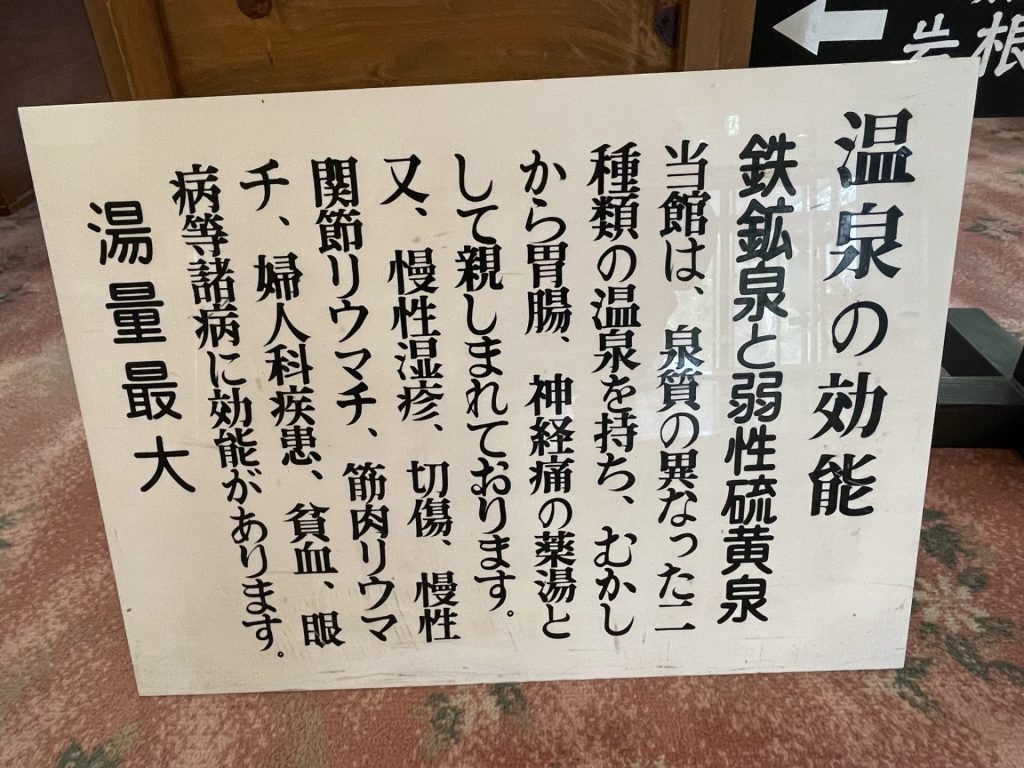 温泉の効能
鉄鉱泉と弱性硫黄泉
当館は、泉質の異なった二
種類の温泉を持ち、むかし
から胃腸、神経痛の薬湯と
して親しまれております。
又、慢性湿疹、切傷、慢性
関節リウマチ、筋肉リウマ
チ、婦人科疾患、貧血、眼
病等諸病に効能があります。
湯量最大
岩根